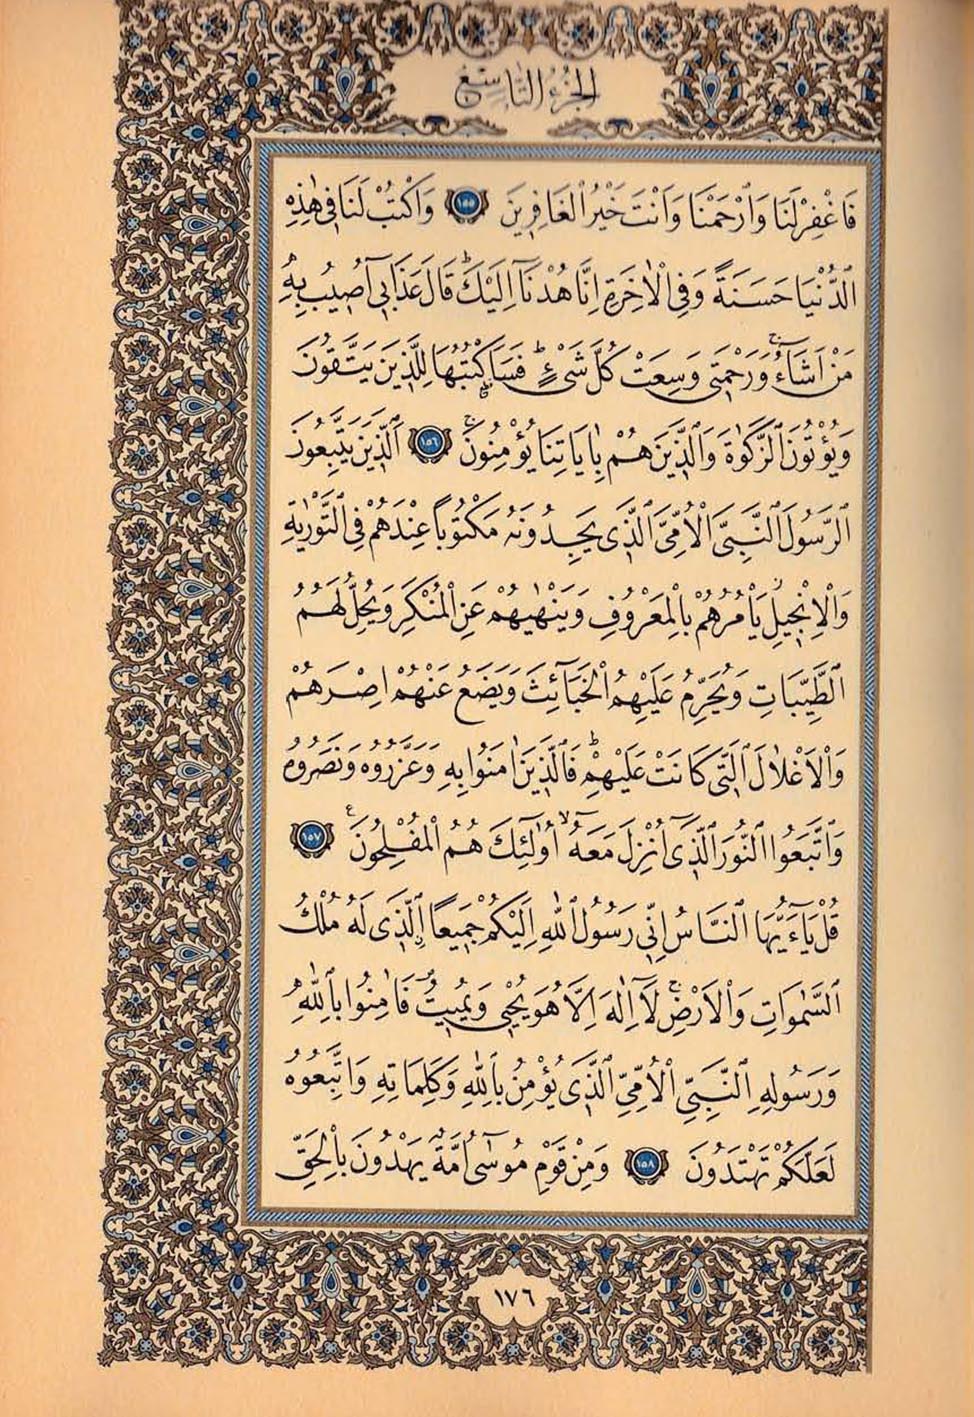 الجزء التاسع
فَاغْفِرْ لَنَا وَارْحَمْنَا وَاَنْتَ خَيْرُ الْغَافِرِينَ ١٥٥ وَاكْتُبْ لَنَا فِي هٰذِهِ
الدُّنْيَا حَسَنَةً وَفِي الْاٰخِرَةِ اِنَّا هُدْنَٓا اِلَيْكَۜ قَالَ عَذَابِٓي اُصِيبُ بِهِ
مَنْ اَشَٓاءُۚ وَرَحْمَتِي وَسِعَتْ كُلَّ شَيْءٍۜ فَسَاَكْتُبُهَا لِلَّذِينَ يَتَّقُونَ
وَيُؤْتُونَ الزَّكٰوةَ وَالَّذِينَ هُمْ بِاٰيَاتِنَا يُؤْمِنُونَۚ ١٥٦ اَلَّذِينَ يَتَّبِعُونَ
الرَّسُولَ النَّبِيَّ الْاُمِّيَّ الَّذِي يَجِدُونَهُ مَكْتُوبًا عِنْدَهُمْ فِي التَّوْرٰيةِ
وَالْاِنْجِيلِۘ يَاْمُرُهُمْ بِالْمَعْرُوفِ وَيَنْهٰيهُمْ عَنِ الْمُنْكَرِ وَيُحِلُّ لَهُمُ
الطَّيِّبَاتِ وَيُحَرِّمُ عَلَيْهِمُ الْخَبَٓائِثَ وَيَضَعُ عَنْهُمْ اِصْرَهُمْ
وَالْاَغْلَالَ الَّتِي كَانَتْ عَلَيْهِمْۜ فَالَّذِينَ اٰمَنُوا بِهِ وَعَزَّرُوهُ وَنَصَرُوهُ
وَاتَّبَعُوا النُّورَ الَّذِٓي اُنْزِلَ مَعَهُٓۙ اُو۬لٰٓئِكَ هُمُ الْمُفْلِحُونَ۟ ١٥٧
قُلْ يَٓا اَيُّهَا النَّاسُ اِنِّي رَسُولُ اللّٰهِ اِلَيْكُمْ جَمِيعًاۨ الَّذِي لَهُ مُلْكُ
السَّمٰوَاتِ وَالْاَرْضِۚ لَٓا اِلٰهَ اِلَّا هُوَ يُحْيِي وَيُمِيتُۖ فَاٰمِنُوا بِاللّٰهِ
وَرَسُولِهِ النَّبِيِّ الْاُمِّيِّ الَّذِي يُؤْمِنُ بِاللّٰهِ وَكَلِمَاتِهِ وَاتَّبِعُوهُ
لَعَلَّكُمْ تَهْتَدُونَ ١٥٨ وَمِنْ قَوْمِ مُوسٰٓى اُمَّةٌ يَهْدُونَ بِالْحَقِّ
١٧٦